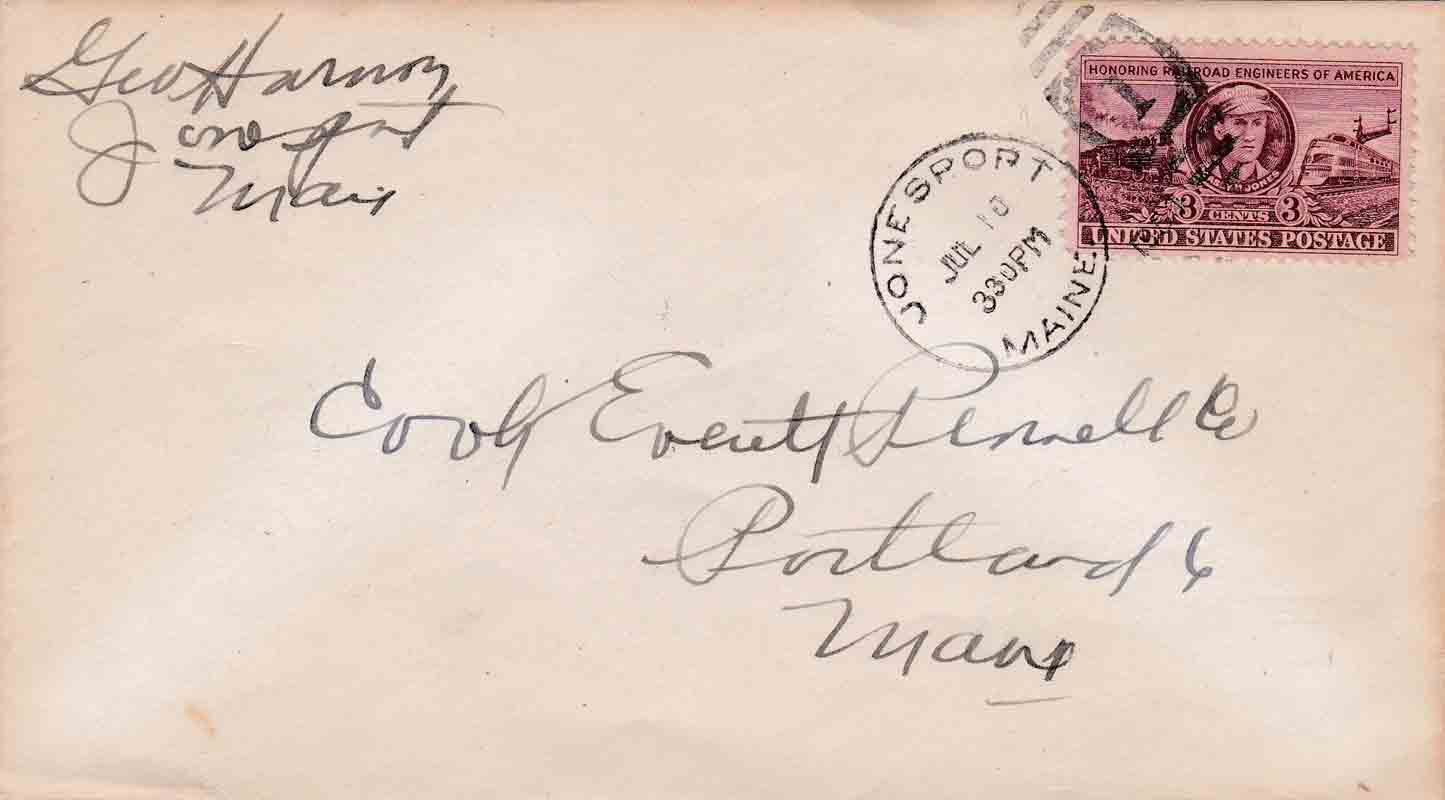 Geo Harmon
Jonesport
Maine
HONORING RAILROAD ENGINEERS OF AMERICA
1
JONES
3 CENTS 3
UNITED STATES POSTAGE
JONESPORT
JUL 10
330PM
MAINE
Cook Everett Pennell Co
Portland 6
Maine